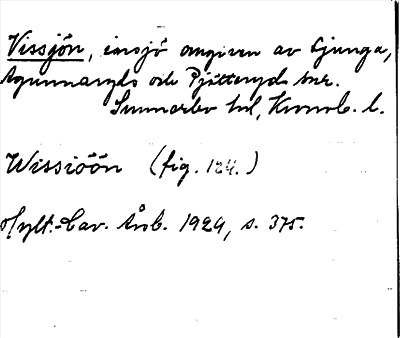 Vissjön, insjö omgiven av Ljunga,
Agunnaryds och Pjätteryds snr.
Sunnerbo hd, Kronob. l.
Wissiöön (fig. 184.)
Hylt.-Cav. Årsb. 1924, s. 375.